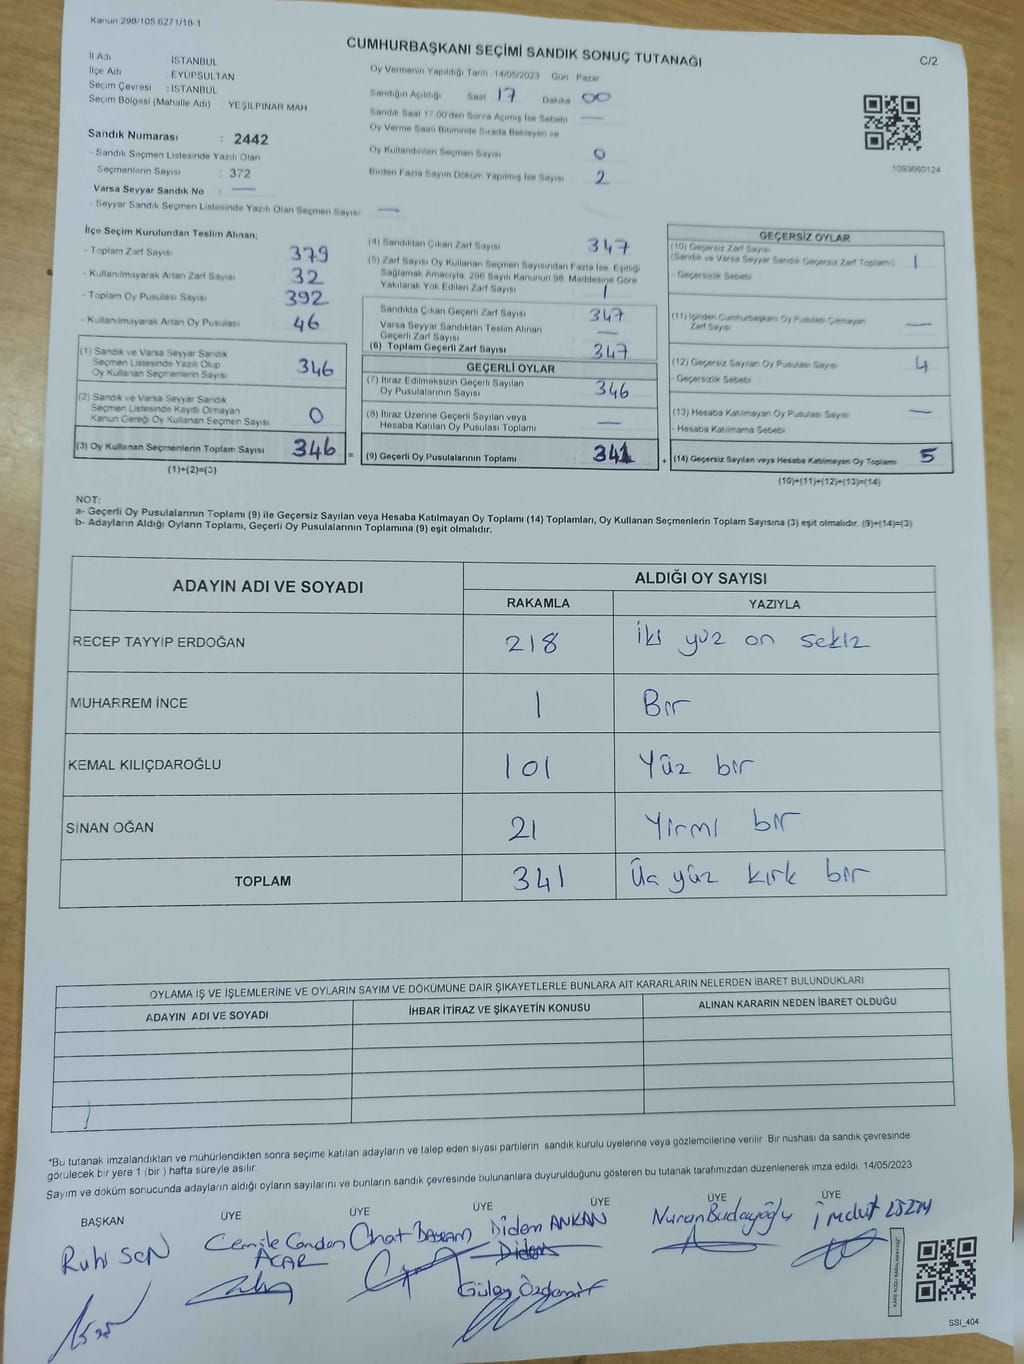 Kanun 298/105,6271/18-1
CUMHURBAŞKANI SEÇİMİ SANDIK SONUÇ TUTANAĞI
C/2
İl Adı : İSTANBUL
İlçe Adı : EYÜPSULTAN
Seçim Çevresi : İSTANBUL
Seçim Bölgesi (Mahalle Adı) : YEŞİLPINAR MAH
Sandık Numarası : 2442
- Sandık Seçmen Listesinde Yazılı Olan
Seçmenlerin Sayısı : 372
Varsa Seyyar Sandık No : —
- Seyyar Sandık Seçmen Listesinde Yazılı Olan Seçmen Sayısı —
Oy Vermenin Yapıldığı Tarih : 14/05/2023 Gün Pazar
Sandığın Açıldığı Saat 17 Dakika 00
Sandık Saat 17.00'den Sonra Açılmış İse Sebebi —
Oy Verme Saati Bitiminde Sırada Bekleyen ve
Oy Kullandırılan Seçmen Sayısı 0
Birden Fazla Sayım Döküm Yapılmış İse Sayısı 2
1093660124
İlçe Seçim Kurulundan Teslim Alınan;
- Toplam Zarf Sayısı 379
- Kullanılmayarak Artan Zarf Sayısı 32
- Toplam Oy Pusulası Sayısı 392
- Kullanılmayarak Artan Oy Pusulası 46
(1) Sandık ve Varsa Seyyar Sandık
Seçmen Listesinde Yazılı Olup
Oy Kullanan Seçmenlerin Sayısı 346
(2) Sandık ve Varsa Seyyar Sandık
Seçmen Listesinde Kayıtlı Olmayan
Kanun Gereği Oy Kullanan Seçmen Sayısı 0
(3) Oy Kullanan Seçmenlerin Toplam Sayısı 346 =
(1)+(2)=(3)
(4) Sandıktan Çıkan Zarf Sayısı 347
(5) Zarf Sayısı Oy Kullanan Seçmen Sayısından Fazla İse, Eşitliği
Sağlamak Amacıyla, 298 Sayılı Kanunun 98. Maddesine Göre
Yakılarak Yok Edilen Zarf Sayısı 1
Sandıkta Çıkan Geçerli Zarf Sayısı 347
Varsa Seyyar Sandıktan Teslim Alınan
Geçerli Zarf Sayısı —
(6) Toplam Geçerli Zarf Sayısı 347
GEÇERLİ OYLAR
(7) İtiraz Edilmeksizin Geçerli Sayılan
Oy Pusulalarının Sayısı 346
(8) İtiraz Üzerine Geçerli Sayılan veya
Hesaba Katılan Oy Pusulası Toplamı —
(9) Geçerli Oy Pusulalarının Toplamı 341 +
GEÇERSİZ OYLAR
(10) Geçersiz Zarf Sayısı
(Sandık ve Varsa Seyyar Sandık Geçersiz Zarf Toplamı) 1
- Geçersizlik Sebebi
(11) İçinden Cumhurbaşkanı Oy Pusulası Çıkmayan
Zarf Sayısı —
(12) Geçersiz Sayılan Oy Pusulası Sayısı 4
- Geçersizlik Sebebi
(13) Hesaba Katılmayan Oy Pusulası Sayısı —
- Hesaba Katılmama Sebebi
(14) Geçersiz Sayılan veya Hesaba Katılmayan Oy Toplamı 5
(10)+(11)+(12)+(13)=(14)
NOT:
a- Geçerli Oy Pusulalarının Toplamı (9) ile Geçersiz Sayılan veya Hesaba Katılmayan Oy Toplamı (14) Toplamları, Oy Kullanan Seçmenlerin Toplam Sayısına (3) eşit olmalıdır. (9)+(14)=(3)
b- Adayların Aldığı Oyların Toplamı, Geçerli Oy Pusulalarının Toplamına (9) eşit olmalıdır.
ADAYIN ADI VE SOYADI ALDIĞI OY SAYISI
RAKAMLA YAZIYLA
RECEP TAYYİP ERDOĞAN 218 İki yüz on sekiz
MUHARREM İNCE 1 Bir
KEMAL KILIÇDAROĞLU 101 Yüz bir
SİNAN OĞAN 21 Yirmi bir
TOPLAM 341 Üç yüz kırk bir
OYLAMA İŞ VE İŞLEMLERİNE VE OYLARIN SAYIM VE DÖKÜMÜNE DAİR ŞİKAYETLERLE BUNLARA AİT KARARLARIN NELERDEN İBARET BULUNDUKLARI
ADAYIN ADI VE SOYADI İHBAR İTİRAZ VE ŞİKAYETİN KONUSU ALINAN KARARIN NEDEN İBARET OLDUĞU
*Bu tutanak imzalandıktan ve mühürlendikten sonra seçime katılan adayların ve talep eden siyasi partilerin sandık kurulu üyelerine veya gözlemcilerine verilir. Bir nüshası da sandık çevresinde
görülecek bir yere 1 (bir ) hafta süreyle asılır.
Sayım ve döküm sonucunda adayların aldığı oyların sayılarını ve bunların sandık çevresinde bulunanlara duyurulduğunu gösteren bu tutanak tarafımızdan düzenlenerek imza edildi. 14/05/2023
BAŞKAN ÜYE ÜYE ÜYE ÜYE ÜYE ÜYE
Ruhi ŞEN Cemile Candan Didem ANKAN Nuran Budayoğlu
ACAR Didem
Gülay Özdemir
KARE KODU KARALAMAYINIZ!
SSI_404